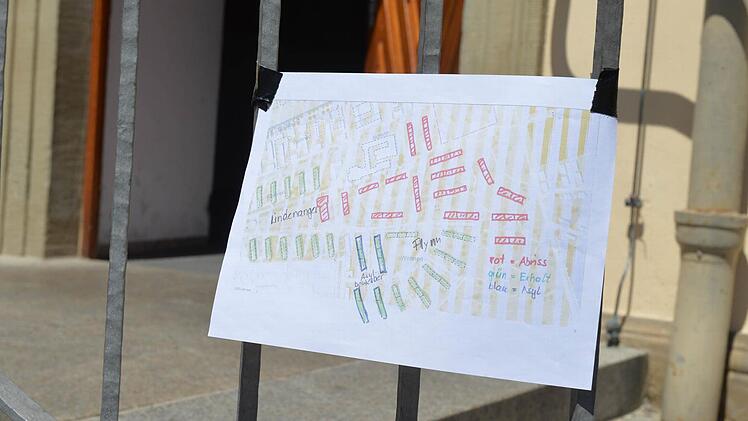 Lindenanger
Plymn
Asyl-
bewerber
rot = Abriss
grün = Erhalt
blau = Asyl